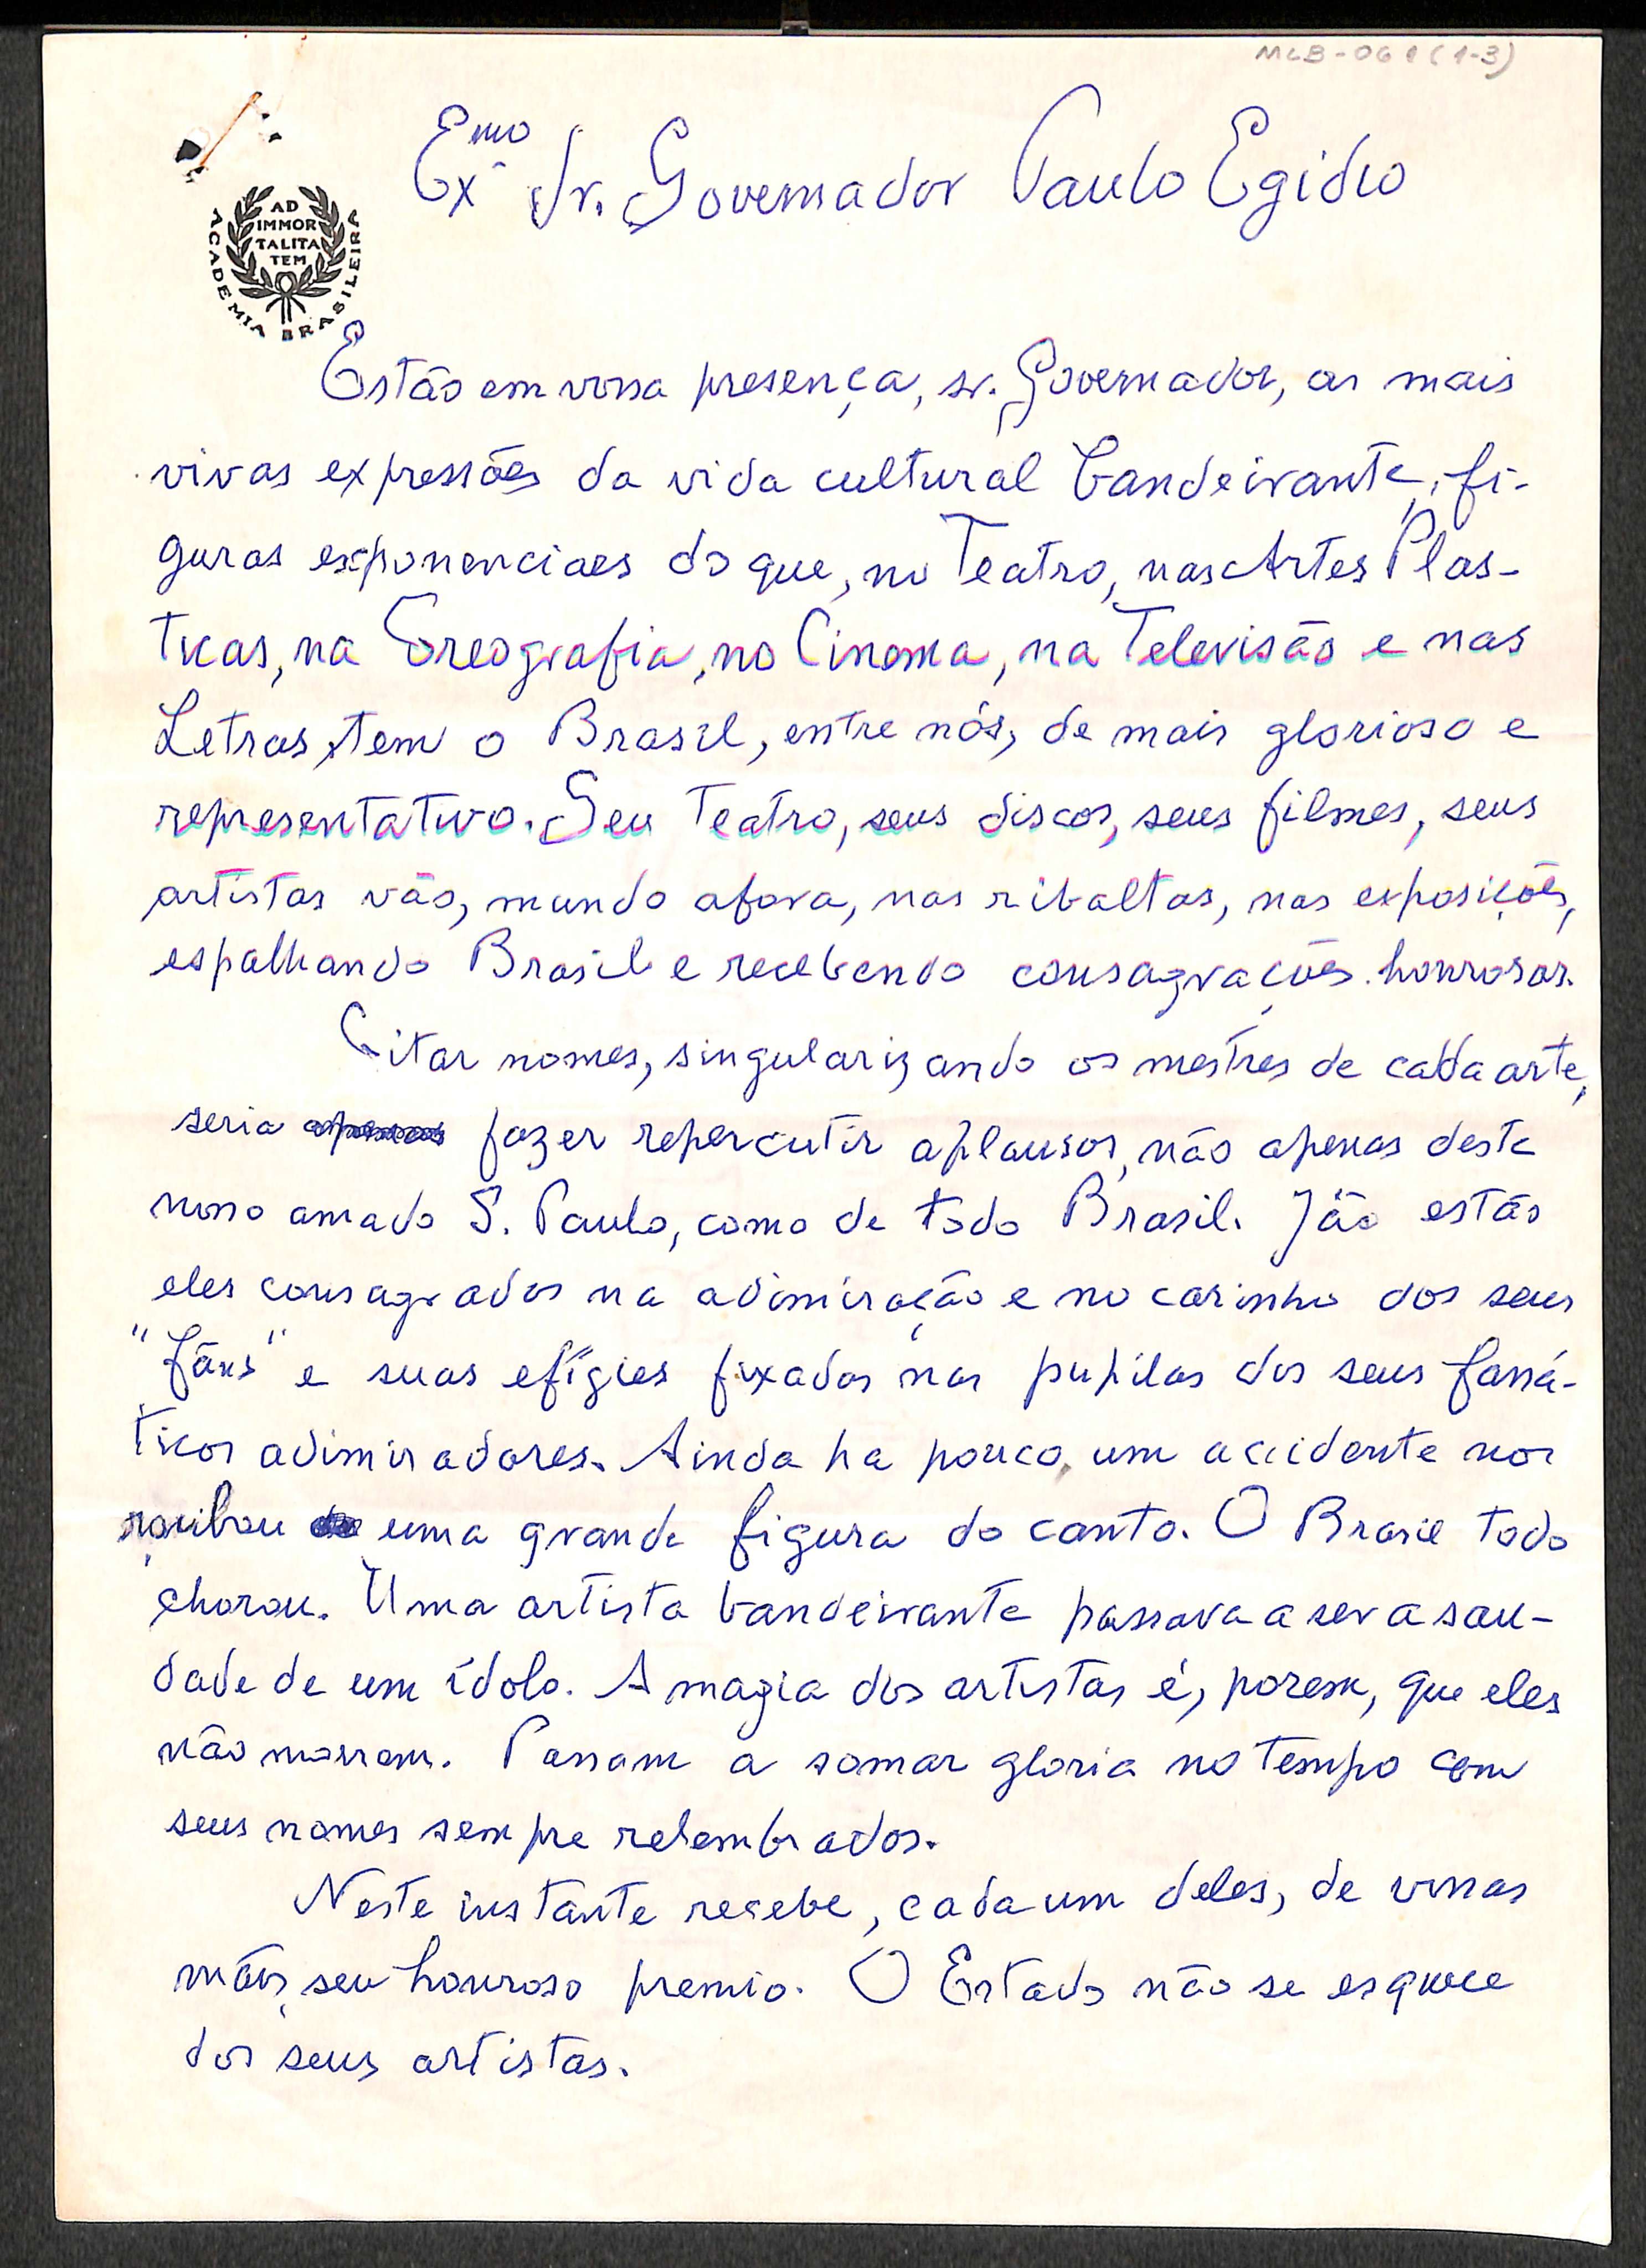 MLB-061(1-3)
Exmo Sr. Governador Paulo Egidio
AD
IMMOR
TALITA
TEM
ACADEMIA BRASILEIRA
Estão em vossa presença, sr. Governador, as mais
vivas expressões da vida cultural bandeirante, fi-
guras exponenciaes do que, no Teatro, nas Artes Plas-
ticas, na Coreografia, no Cinema, na Televisão e nas
Letras, tem o Brasil, entre nós, de mais glorioso e
representativo. Seu Teatro, seus discos, seus filmes, seus
artistas vão, mundo afora, nas ribaltas, nas exposições,
espalhando Brasil e recebendo consagrações honrosas.
Citar nomes, singularizando os mestres de cada arte,
seria fazer repercutir aplausos, não apenas deste
nosso amado S. Paulo, como de todo Brasil. Jão estão
eles consagrados na adimiração e no carinho dos seus
"fãns" e suas efígies fixadas nas pupilas dos seus faná-
ticos adimiradores. Ainda ha pouco, um accidente nos
roubou uma grande figura do canto. O Brasil todo
chorou. Uma artista bandeirante passava a ser a sau-
dade de um ídolo. A magia dos artistas é, porem, que eles
não morrem. Passam a somar gloria no tempo com
seus nomes sempre relembrados.
Neste instante recebe, cada um deles, de vossas
mãos, seu honroso premio. O Estado não se esquece
dos seus artistas.